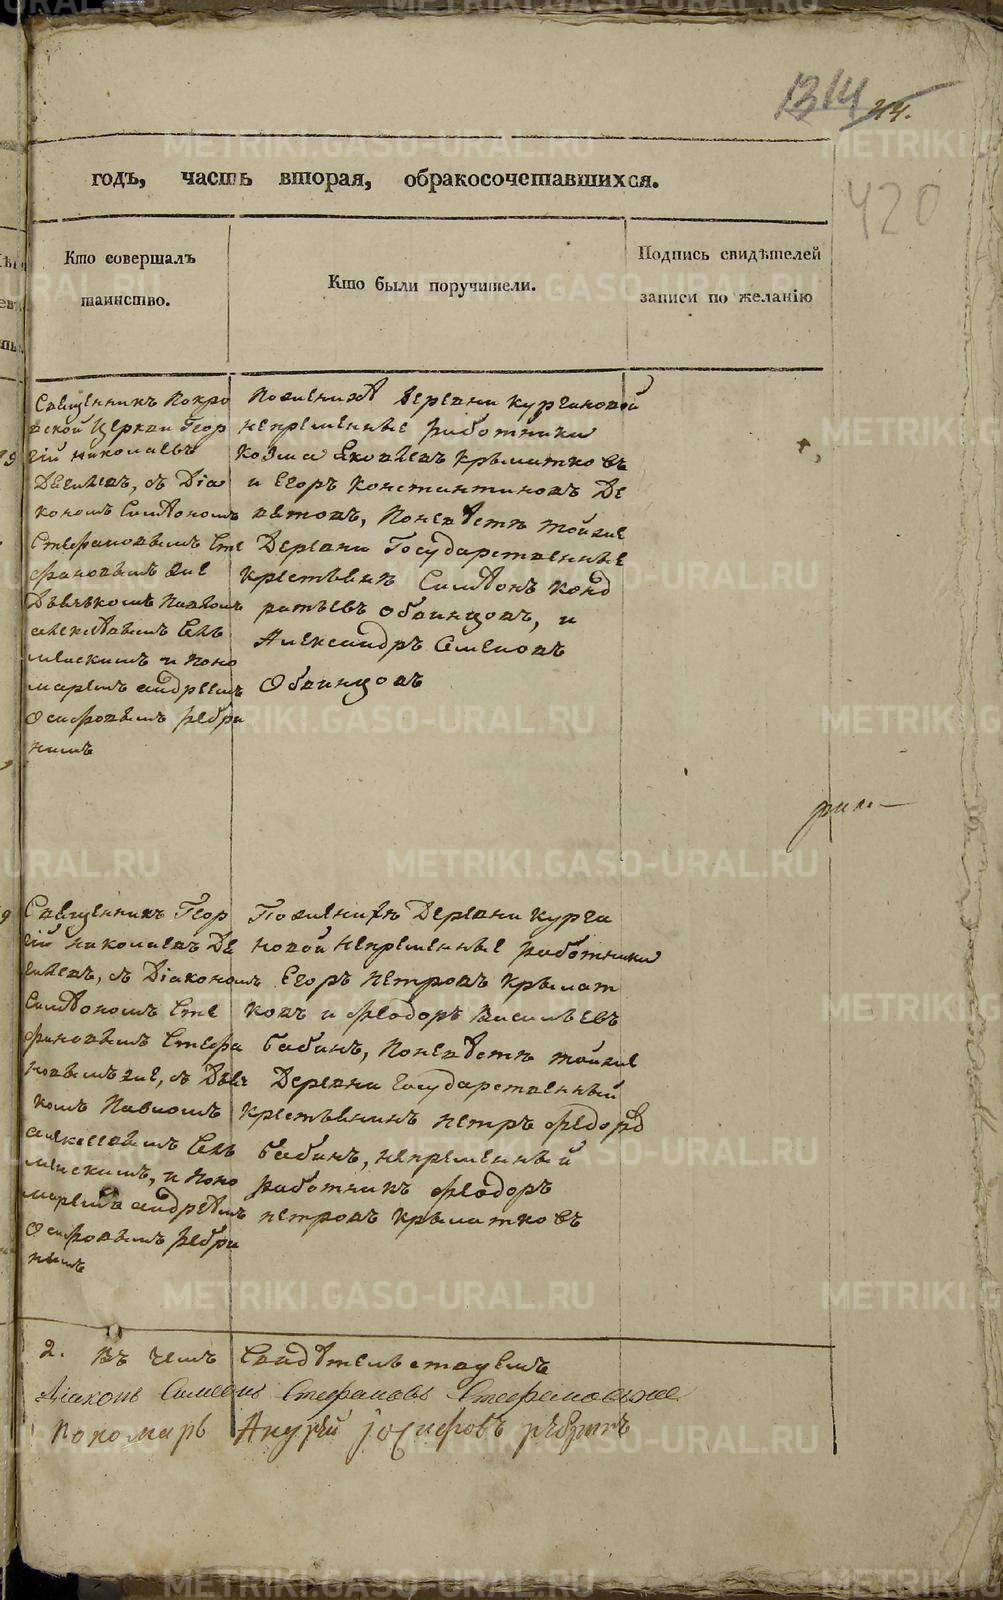 1314 44.
420
годъ, часть вторая, обракосочетавшихся.
Кто совершалъ
таинство.
Кто были поручители.
Подпись свидѣтелей
записи по желанію
Священникъ Покро
вской Церкви Геор
гій Николаевъ
Дегилевъ, съ Діа
кономъ Симѣономъ
Стефановымъ Сте
фановымъ же
Дьячькомъ Павломъ
алексѣевымъ Сель
менскимъ и Поно
маремъ андреемъ
Осиповымъ Ребри
нымъ
По женихѣ деревни Кургановой
непременные работники
Козма Яковлевъ Крылатковъ
и Егоръ Константиновъ Де
ветовъ, По невѣстѣ той же
Деревни Государственные
крестьяне Симѣонъ Конд
ратьевъ Обвинцовъ, и
Александръ Семеновъ
Обвинцовъ
Священникъ Геор
гій Николаевъ Де
гилевъ, съ Діакономъ
Симѣономъ Сте
фановымъ Стефа
новымъ же, съ Дьяч
комъ Павломъ
алексеевымъ Сель
менскимъ, и Поно
маремъ андреемъ
Осиповымъ Ребри
нымъ
По женихѣ Деревни Курга
новой непременные работники
Егоръ Петровъ Крылат
ковъ и Феодоръ Васильевъ
бабинъ, По невѣстѣ той же
Деревни Государственный
крестьянинъ Петръ Федоровъ
бабинъ, непременный
работникъ Феодоръ
Петровъ Крылатковъ
2. Въ чемъ Свидѣтельствуемъ
Діаконъ Симеонъ Стефановъ Стефановъ же
Пономарь Андрей Іосифовъ Ребринъ
METRIKI.GASO-URAL.RU